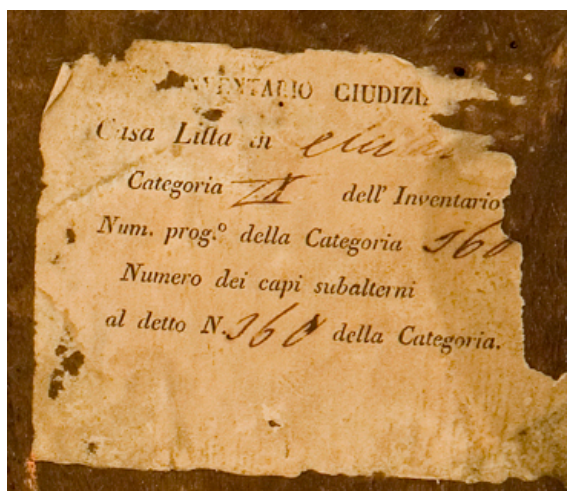 INVENTARIO GIUDIZI
Casa Litta in
Categoria IX dell' Inventario
Num. prog.º della Categoria 360
Numero dei capi subalterni
al detto N. 360 della Categoria.